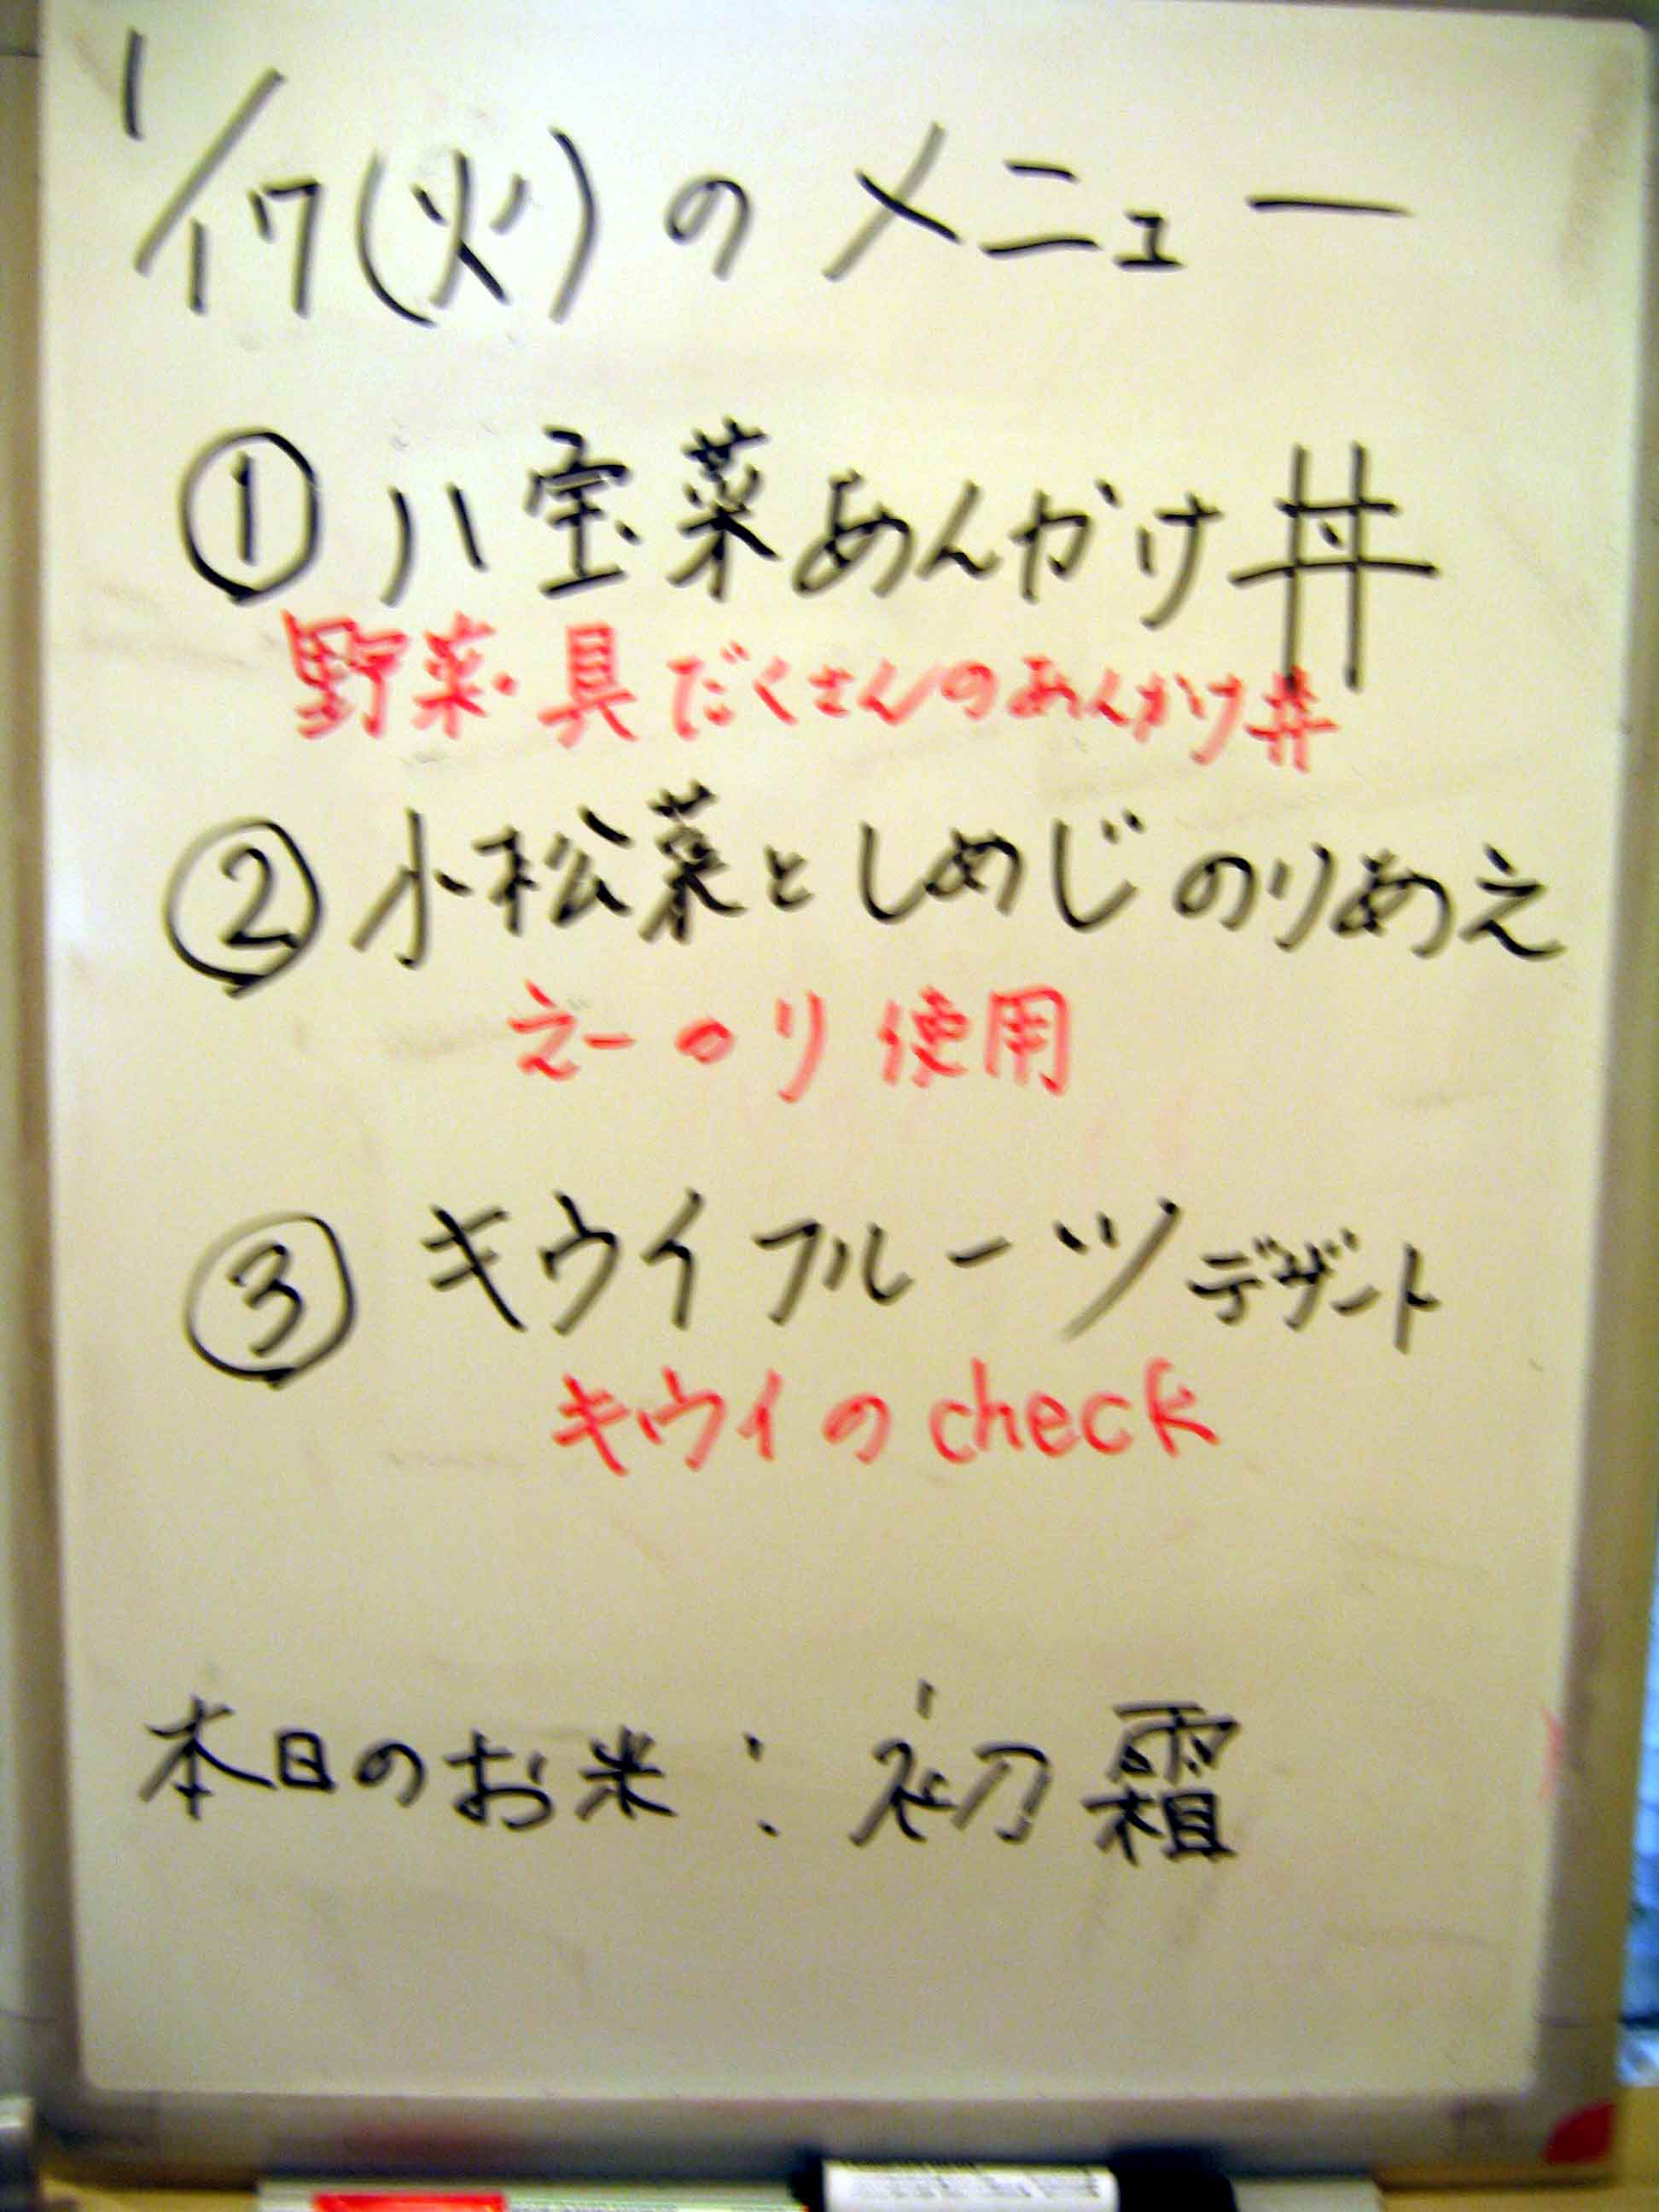 1/17(火)のメニュー
①八宝菜あんかけ丼
野菜・具だくさんのあんかけ丼
②小松菜としめじのりあえ
えーのり使用
③キウイフルーツデザート
キウイのcheck
本日のお米:初霜